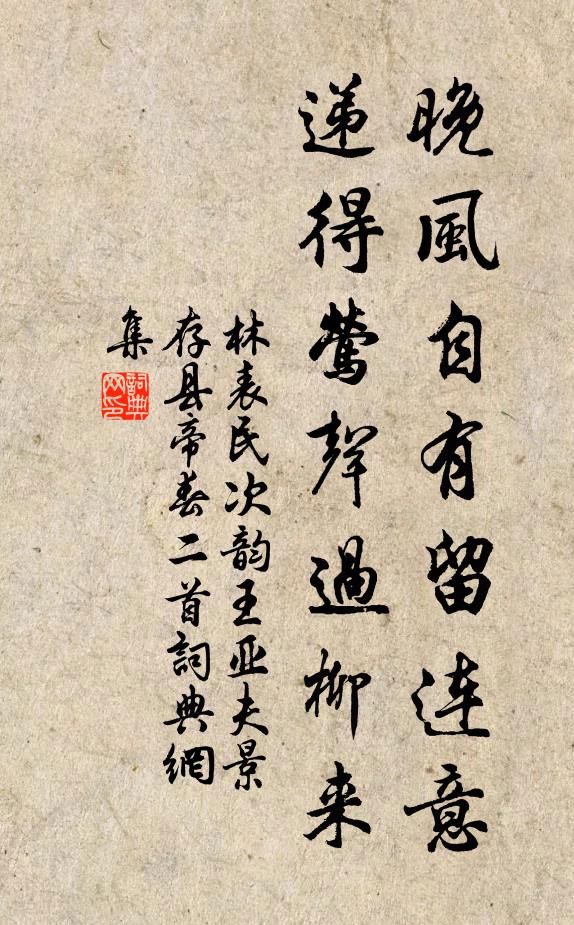 晚風自有留连意
遞得鶯聲過柳来
林表民次韵王亚夫景
存县帝春二首詞典網
集
詞典
网印